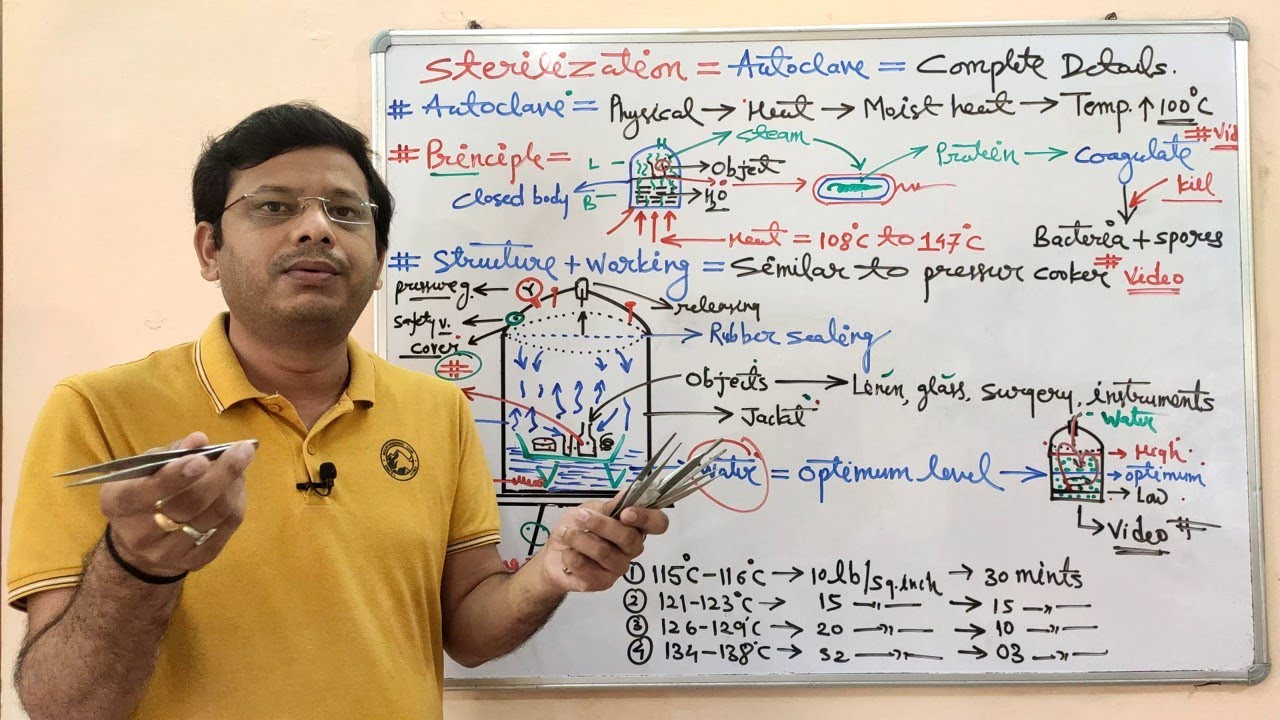 Sterilization = Autoclave = Complete Details.
# Autoclave = Physical → Heat → Moist heat → Temp. ↑ 100°C
# Vid
# Principle =
closed body
L
H
B
Steam
Object
H2O
Protein → Coagulate
Kill
Bacteria + spores
Heat = 108°C to 147°C
# Structure + Working = Similar to pressur cooker # Video
pressure g.
releasing
safety v.
cover
Rubber sealing
#
Objects → Linin, glass, surgery, instruments
Jackat
Water
water = optimum level →
High
optimum
Low
Video #
① 115°C-116°C → 10 lb/sq.inch → 30 mints
② 121-123°C → 15 —〃— → 15 —〃—
③ 126-129°C → 20 —〃— → 10 —〃—
④ 134-138°C → 32 —〃— → 03 —〃—